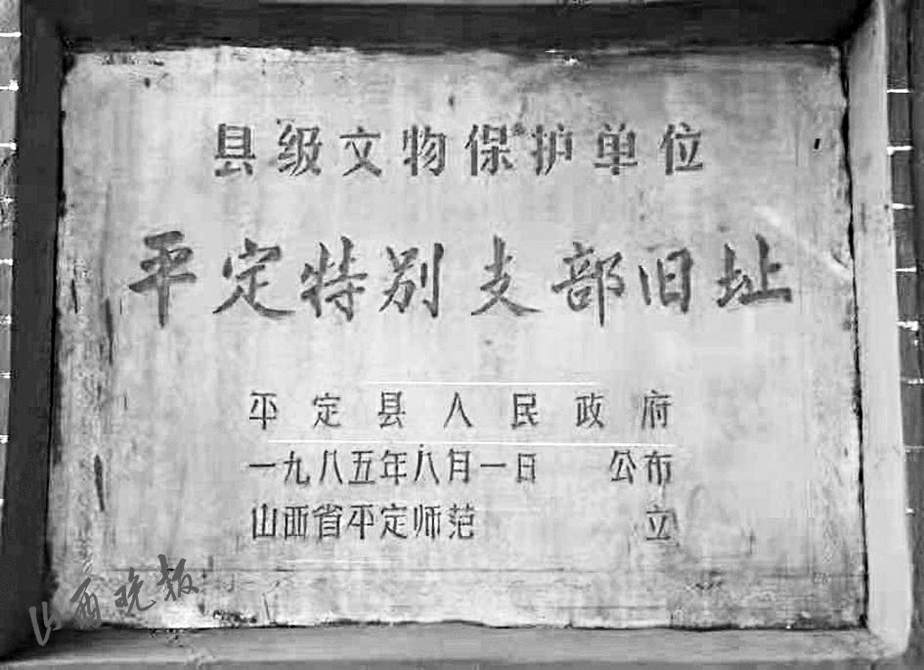 县级文物保护单位
平定特别支部旧址
平定县人民政府
一九八五年八月一日 公布
山西省平定师范 立
山西晚报